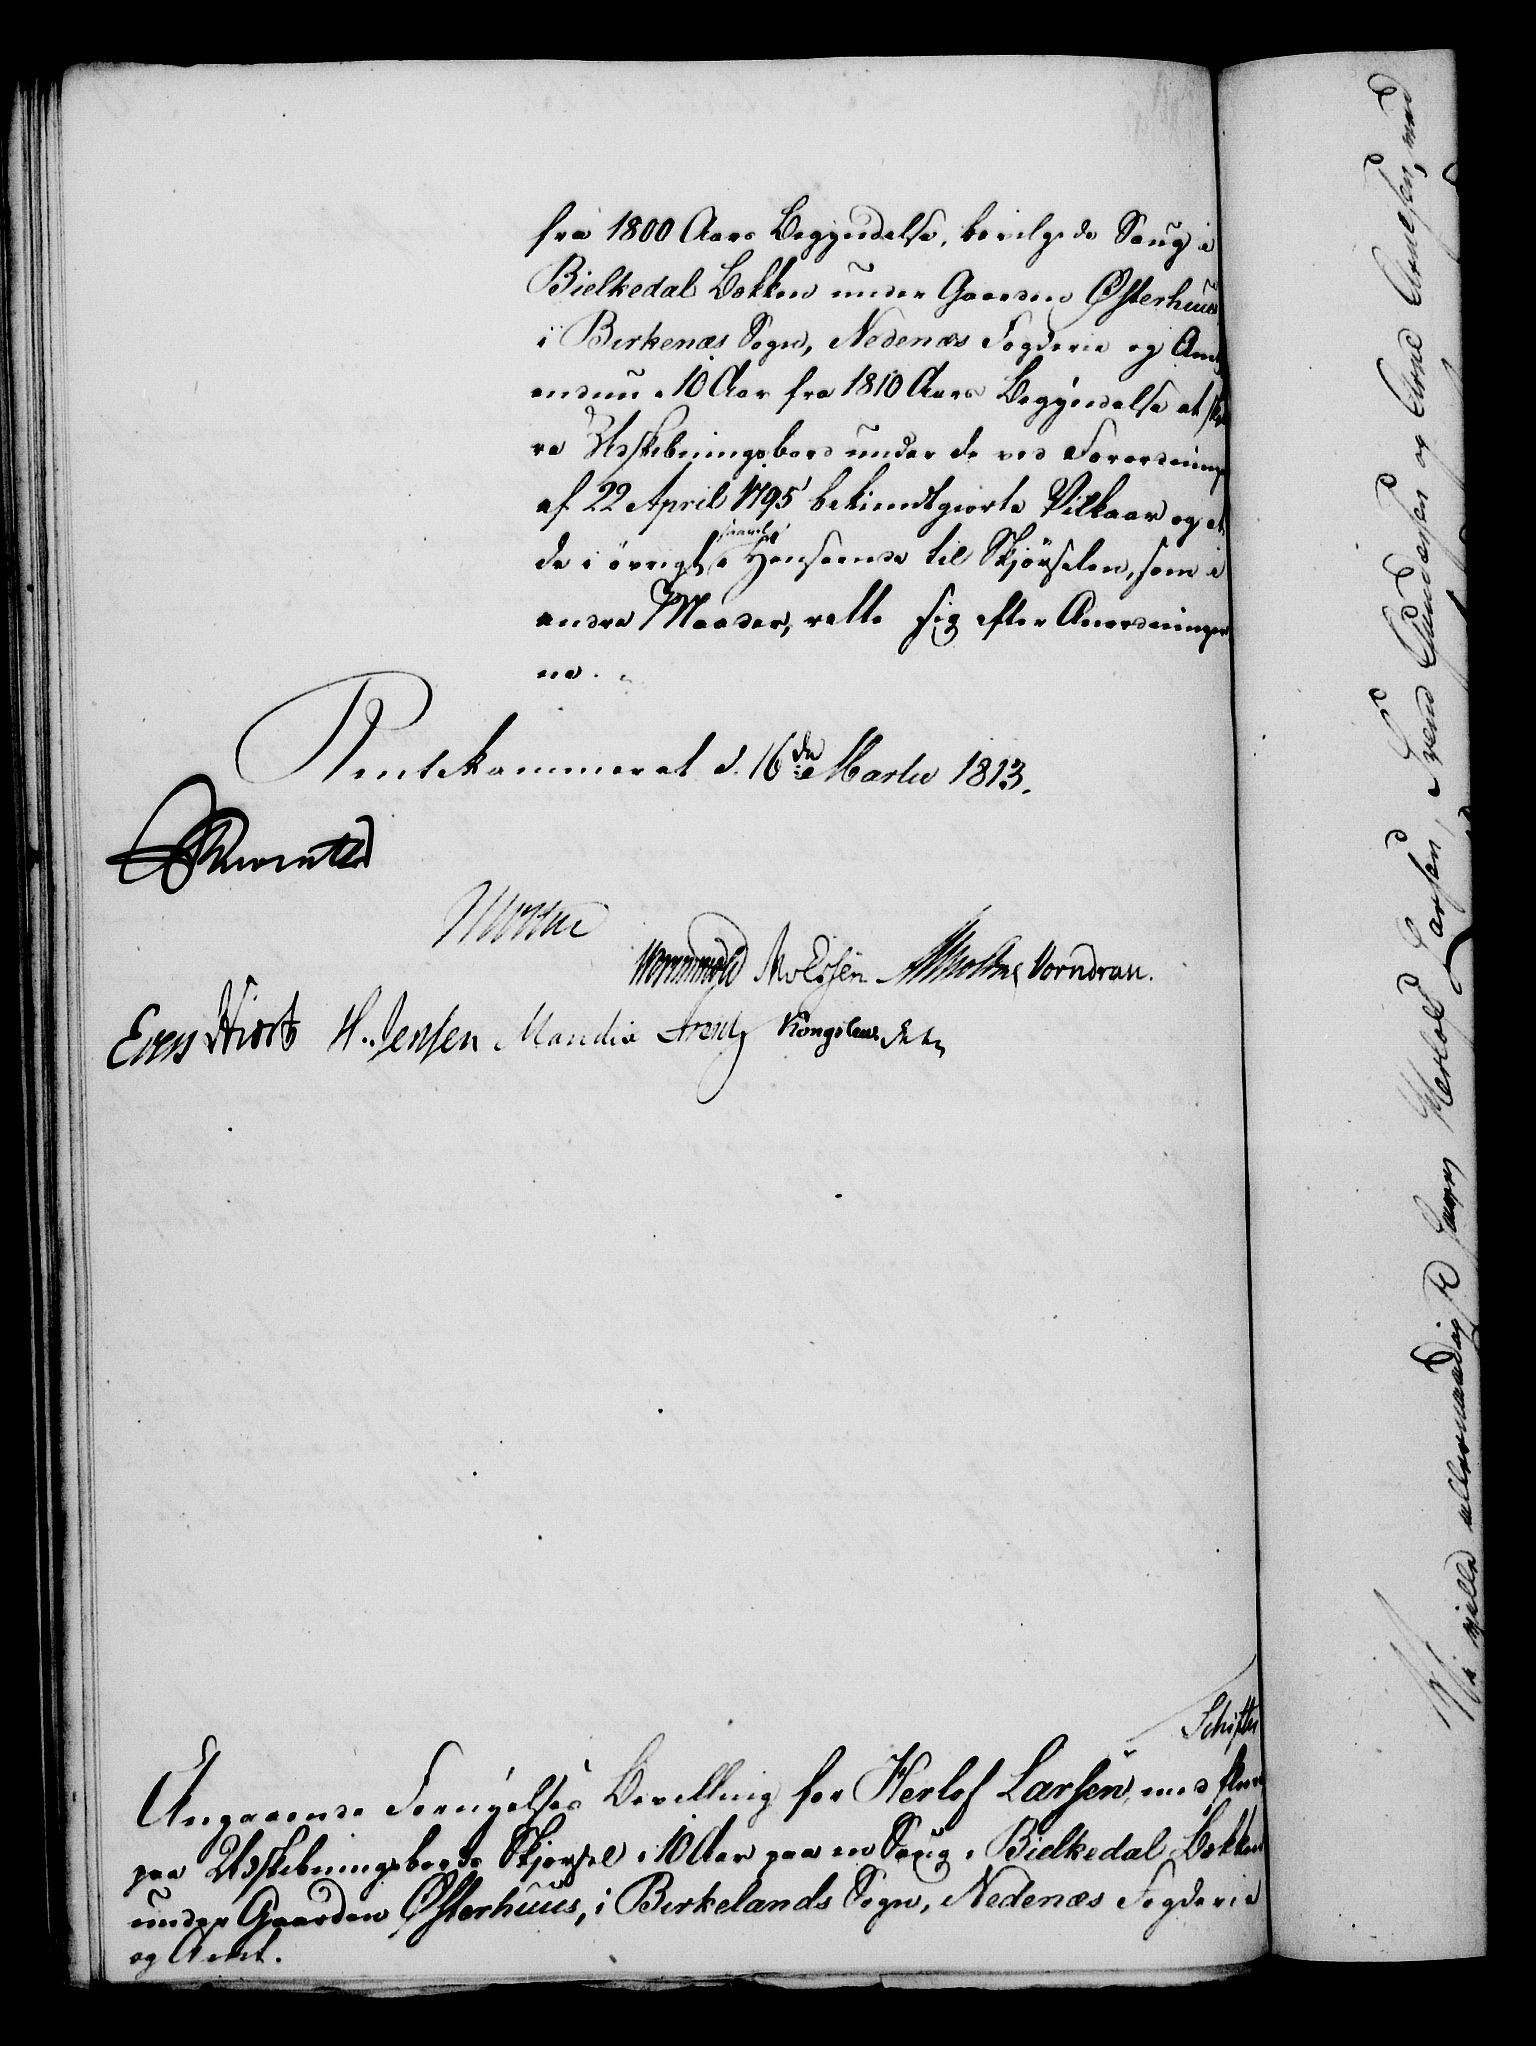 fra 1800 Aars Begyndelse, bevilgede Saug i
Bielkedal Bekken under Gaarden Østerhuus
i Birkenæs Sogn, Nedenæs Fogderie og Amt
endnu i 10 Aar fra 1810 Aars Begyndelse at skiæ
re Udskibningsbord under de ved Forordningen
af 22 April 1795 bekiendtgiorte Vilkaar og at
de i øvrigt saavel i Henseende til Skjørselen, som i
andre Maader, rette sig efter Anordninger
ne.
Rentekammeret d. 16de Martii 1813.
Reventlow
Wormskiold Vorndran.
Hiort H. Jensen Mandix
Schifter
Angaaende Fornyelses Bevilling for Herlof Larsen, med flere
paa Udskibningsbords Skjørsel i 10 Aar paa en Saug i Bielkedal Bekken
under Gaarden Østerhuus, i Birkelands Sogn, Nedenæs Fogderie
og Amt.
allernaadigst Herlof Larsen, Svend Gundersen og Arne Arnesen, med